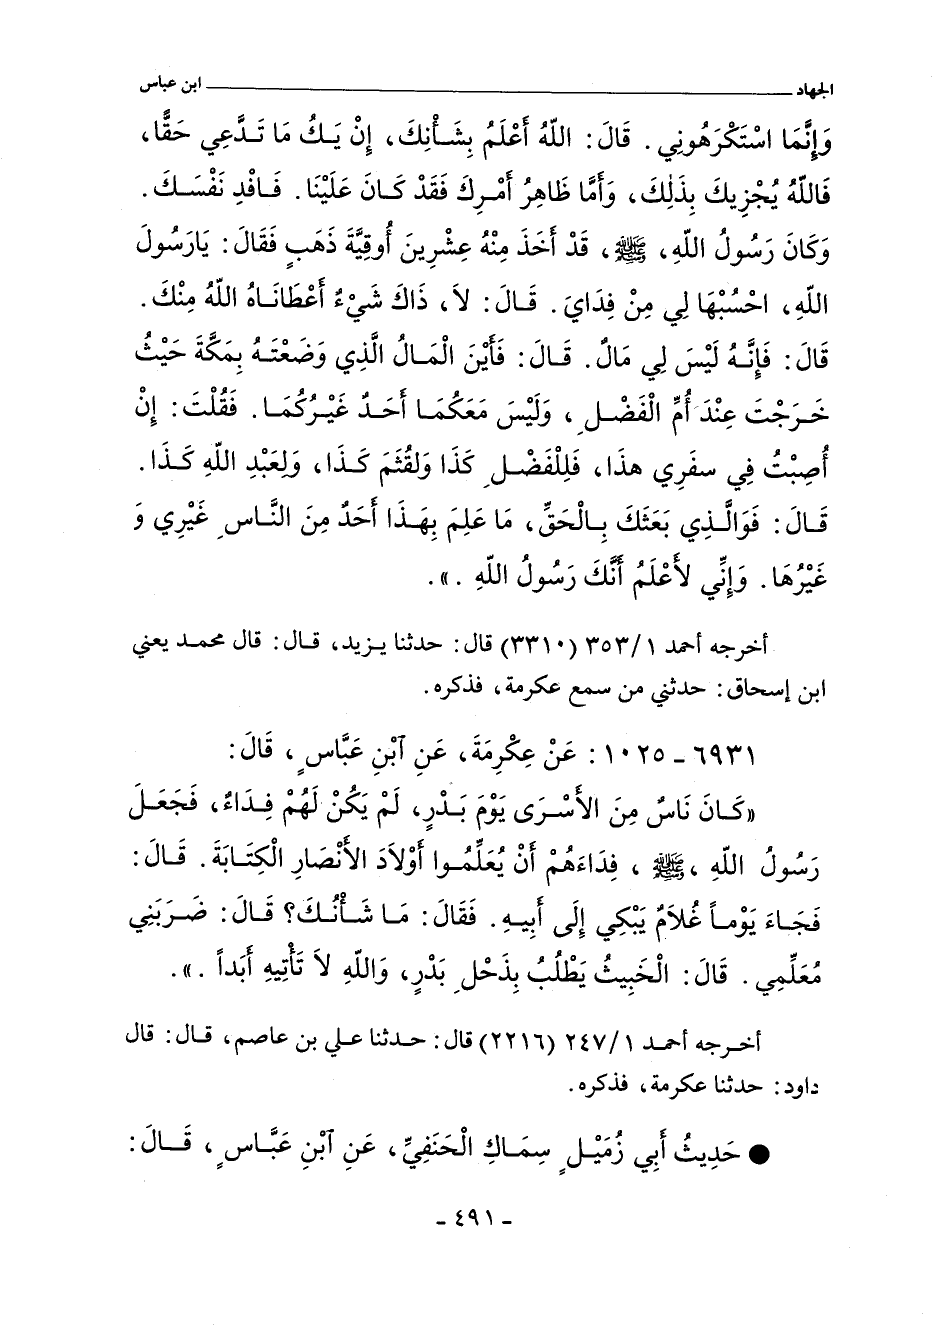 الجهاد ــــــــــــــــــــــــــــــــــــــــ ابن عباس
وَإِنَّمَا اسْتَكْرَهُونِي. قَالَ: اللّهُ أَعْلَمُ بِشَأْنِكَ، إِنْ يَكُ مَا تَدَّعِي حَقًّا،
فَاللّهُ يُجْزِيكَ بِذَلِكَ، وَأَمَّا ظَاهِرُ أَمْرِكَ فَقَدْ كَانَ عَلَيْنَا. فَافْدِ نَفْسَكَ.
وَكَانَ رَسُولُ اللّهِ، ﷺ، قَدْ أَخَذَ مِنْهُ عِشْرِينَ أُوقِيَّةَ ذَهَبٍ فَقَالَ: يَارَسُولَ
اللّهِ، احْسُبْهَا لِي مِنْ فِدَايَ. قَالَ: لاَ، ذَاكَ شَيْءٌ أَعْطَانَاهُ اللّهُ مِنْكَ.
قَالَ: فَإِنَّهُ لَيْسَ لِي مَالٌ. قَالَ: فَأَيْنَ الْمَالُ الَّذِي وَضَعْتَهُ بِمَكَّةَ حَيْثُ
خَرَجْتَ عِنْدَ أُمِّ الْفَضْلِ، وَلَيْسَ مَعَكُمَا أَحَدٌ غَيْرُكُمَا. فَقُلْتَ: إِنْ
أُصِبْتُ فِي سفَرِي هذَا، فَلِلْفَضْلِ كَذَا وَلِقُثَمَ كَذَا، وَلِعَبْدِ اللّهِ كَذَا.
قَالَ: فَوَالَّذِي بَعَثَكَ بِالْحَقِّ، مَا عَلِمَ بِهَذَا أَحَدٌ مِنَ النَّاسِ غَيْرِي وَ
غَيْرُهَا. وَإِنِّي لأَعْلَمُ أَنَّكَ رَسُولُ اللّهِ.».
أخرجه أحمد ١/٣٥٣ (٣٣١٠) قال: حدثنا يزيد، قال: قال محمد يعني
ابن إسحاق: حدثني من سمع عكرمة، فذكره.
٦٩٣١ - ١٠٢٥: عَنْ عِكْرِمَةَ، عَنِ آبْنِ عَبَّاسٍ، قَالَ:
«كَانَ نَاسٌ مِنَ الأَسْرَى يَوْمَ بَدْرٍ، لَمْ يَكُنْ لَهُمْ فِدَاءٌ، فَجَعَلَ
رَسُولُ اللّهِ، ﷺ، فِدَاءَهُمْ أَنْ يُعَلِّمُوا أَوْلاَدَ الأَنْصَارِ الْكِتَابَةَ. قَالَ:
فَجَاءَ يَوْماً غُلاَمٌ يَبْكِي إِلَى أَبِيهِ. فَقَالَ: مَا شَأْنُكَ؟ قَالَ: ضَرَبَنِي
مُعَلِّمِي. قَالَ: الْخَبِيثُ يَطْلُبُ بِذَحْلِ بَدْرٍ، وَاللّهِ لاَ تَأْتِيهِ أَبَداً.».
أخرجه أحمد ١/٢٤٧ (٢٢١٦) قال: حدثنا علي بن عاصم، قال: قال
داود: حدثنا عكرمة، فذكره.
● حَدِيثُ أَبِي زُمَيْلٍ سِمَاكِ الْحَنَفِيِّ، عَنِ آبْنِ عَبَّاسٍ، قَالَ:
- ٤٩١ -